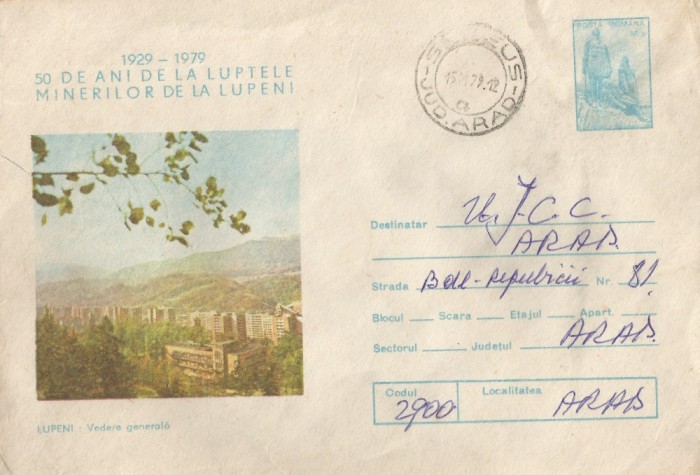 1929 – 1979
50 DE ANI DE LA LUPTELE
MINERILOR DE LA LUPENI
LUPENI : Vedere generală
JUD. ARAD
POSTA ROMANA
Destinatar J.C.C.
ARAD.
Strada Bdul - Republicii Nr. 81
Blocul Scara Etajul Apart.
Sectorul Județul ARAD.
Codul Localitatea
2900 ARAD